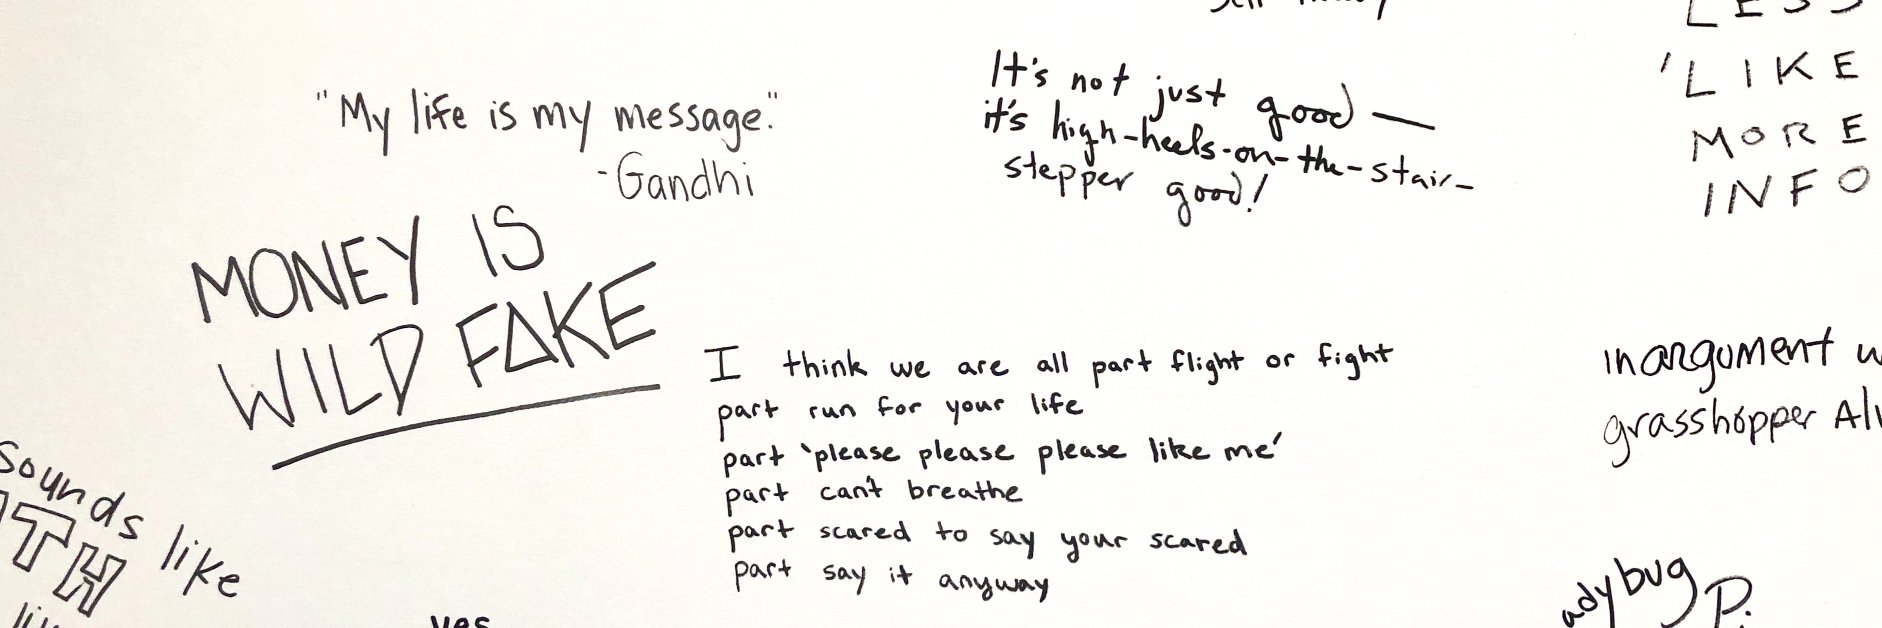 "My life is my message."
-Gandhi
MONEY IS
WILD FAKE
It's not just good —
it's high-heels-on-the-stair-
stepper good!
'LIKE
MORE
INFO
I think we are all part flight or fight
part run for your life
part 'please please please like me'
part can't breathe
part scared to say your scared
part say it anyway
in argument
grasshopper
sounds like
TH
yes
adybug
P.